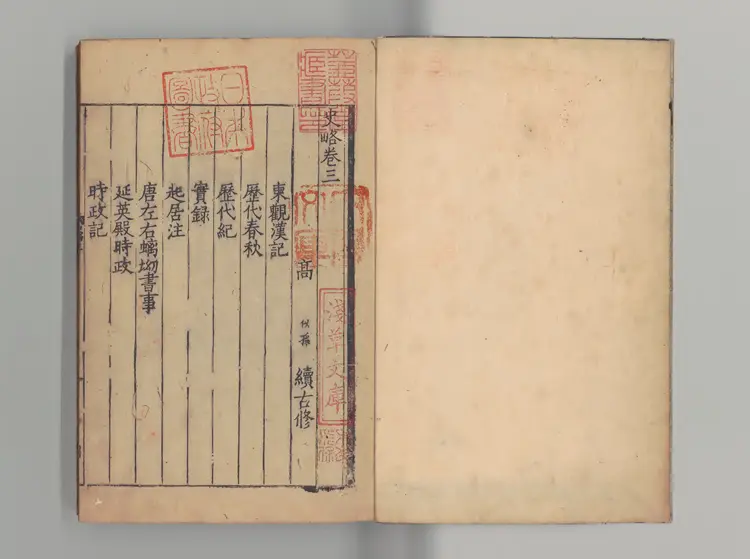 史略卷三
高 似孫 續古修
東觀漢記
歷代春秋
歷代紀
實録
起居注
唐左右螭坳書事
延英殿時政
時政記
日本
政府
圖書
淺草文庫